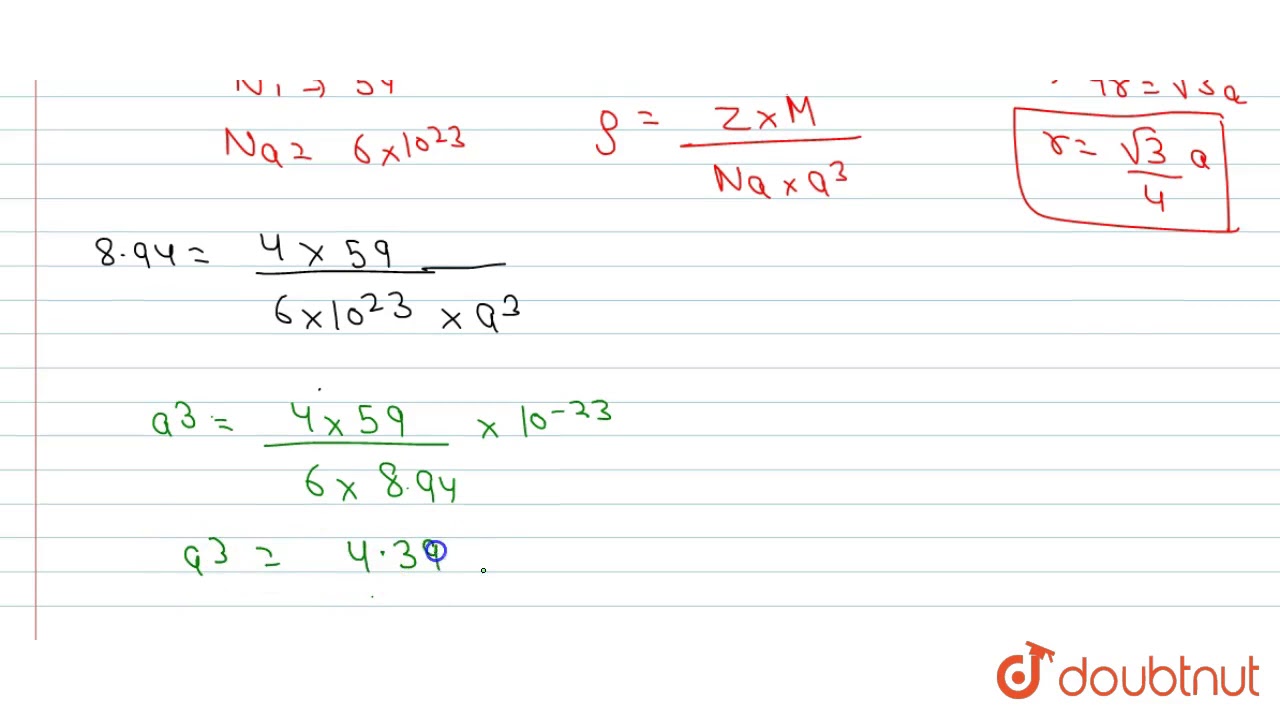 Ni → 59
4r = √3 a
Na = 6×10²³
ρ = Z × M / Na × a³
r = √3/4 a
8.94 = 4 × 59 / 6×10²³ × a³
a³ = 4 × 59 / 6 × 8.94 × 10⁻²³
a³ = 4.39
doubtnut